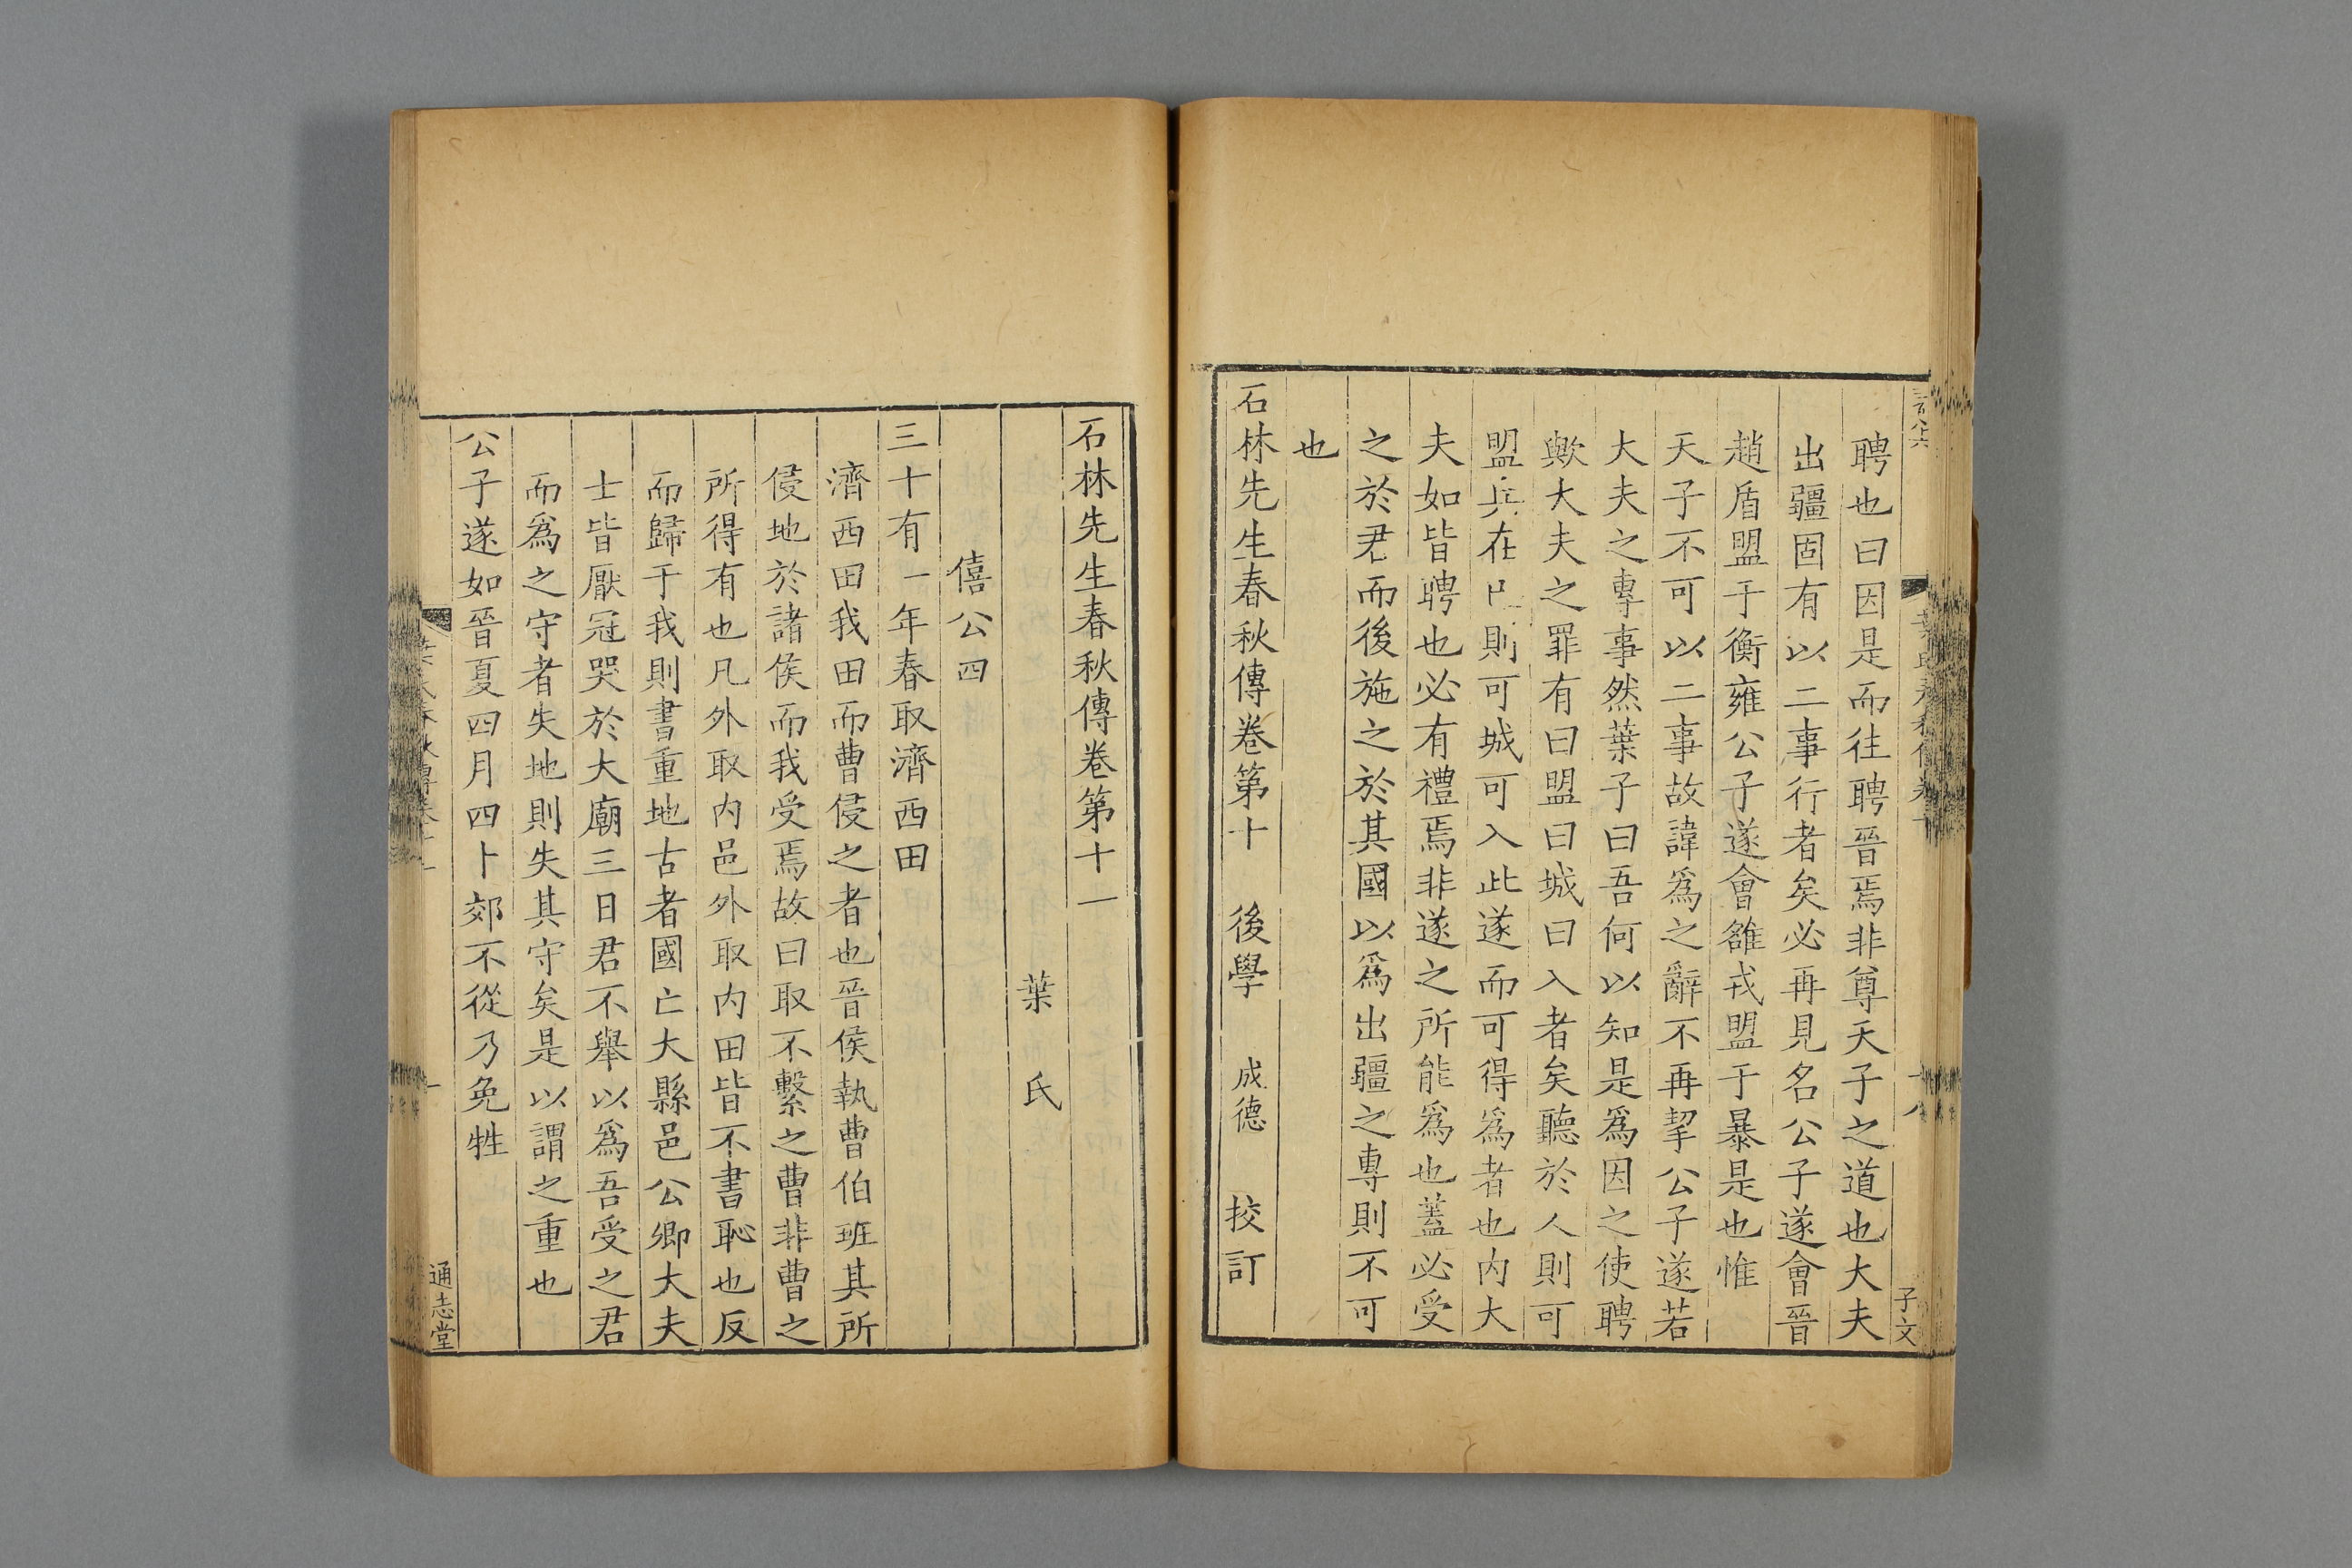 聘也曰因是而往聘晉焉非尊天子之道也大夫
出疆固有以二事行者矣必再見名公子遂會晉
趙盾盟于衡雍公子遂會雒戎盟于暴是也惟
天子不可以二事故諱爲之辭不再挈公子遂若
大夫之專事然葉子曰吾何以知是爲因之使聘
歟大夫之罪有曰盟曰城曰入者矣聽於人則可
盟兵在則可城可入此遂而可得爲者也内大
夫如皆聘也必有禮焉非遂之所能爲也蓋必受
之於君而後施之於其國以爲出疆之專則不可
也
石林先生春秋傳卷第十 後學 成德 挍訂
十八
子文
石林先生春秋傳卷第十一
葉氏
僖公四
三十有一年春取濟西田
濟西田我田而曹侵之者也晉侯執曹伯班其所
侵地於諸侯而我受焉故曰取不繫之曹非曹之
所得有也凡外取内邑外取内田皆不書恥也反
而歸于我則書重地古者國亡大縣邑公卿大夫
士皆厭冠哭於大廟三日君不舉以爲吾受之君
而爲之守者失地則失其守矣是以謂之重也
公子遂如晉夏四月四卜郊不從乃免牲
一
通志堂